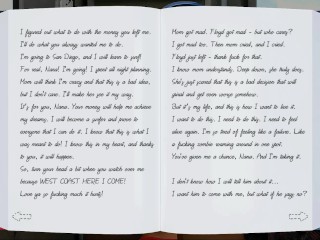 I figured out what to do with the money you left me.
I'll do what you always wanted me to do.
I'm going to San Diego, and I will learn to surf!
For real, Nana! I'm going! I spent all night planning.
Mom will think I'm crazy and that this is a bad idea,
but I don't care. I'll make her see it my way.
It's for you, Nana. Your money will help me achieve
my dreams. I will become a surfer and prove to
everyone that I can do it. I know that this is what I
was meant to do! I know this in my heart, and thanks
to you, it will happen.
So, turn your head a bit when you watch over me
because WEST COAST HERE I COME!
Love ya so fucking much it hurts!
Mom got mad. Floyd got mad - but who cares?
I got mad too. Then mom cried, and I cried.
Floyd just left - thank fuck for that.
I know mom understands. Deep down, she truly does.
She's just scared that this is a bad decision that will
spiral and get even worse somehow.
But it's my life, and this is how I want to live it.
I want to do this. I need to do this. I need to feel
alive again. I'm so tired of feeling like a failure. Like
a fucking zombie running around in one spot.
You've given me a chance, Nana. And I'm taking it.
I don't know how I will tell him about it...
I want him to come with me, but what if he says no?